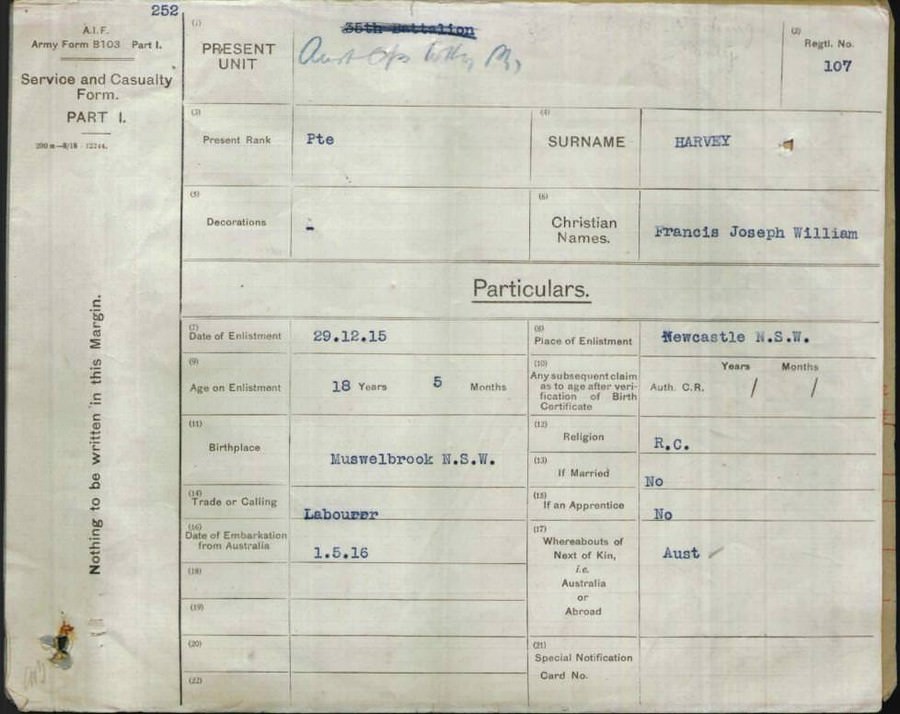 252
A.I.F.
Army Form B103 Part I.
Service and Casualty
Form.
PART I.
200 m—8/18 12244.
Nothing to be written in this Margin.
(1)
PRESENT
UNIT
35th Battalion
Aust
(2)
Regtl. No.
107
(3)
Present Rank
Pte
(4)
SURNAME
HARVEY
(5)
Decorations
-
(6)
Christian
Names.
Francis Joseph William
Particulars.
(7)
Date of Enlistment
29.12.15
(8)
Place of Enlistment
Newcastle N.S.W.
(9)
Age on Enlistment
18 Years 5 Months
(10)
Any subsequent claim
as to age after veri-
fication of Birth
Certificate
Auth. C.R.
Years Months
/ /
(11)
Birthplace
Muswelbrook N.S.W.
(12)
Religion
R.C.
(13)
If Married
No
(14)
Trade or Calling
Labourer
(15)
If an Apprentice
No
(16)
Date of Embarkation
from Australia
1.5.16
(17)
Whereabouts of
Next of Kin,
i.e.
Australia
or
Abroad
Aust
(18)
(19)
(20)
(21)
Special Notification
Card No.
(22)